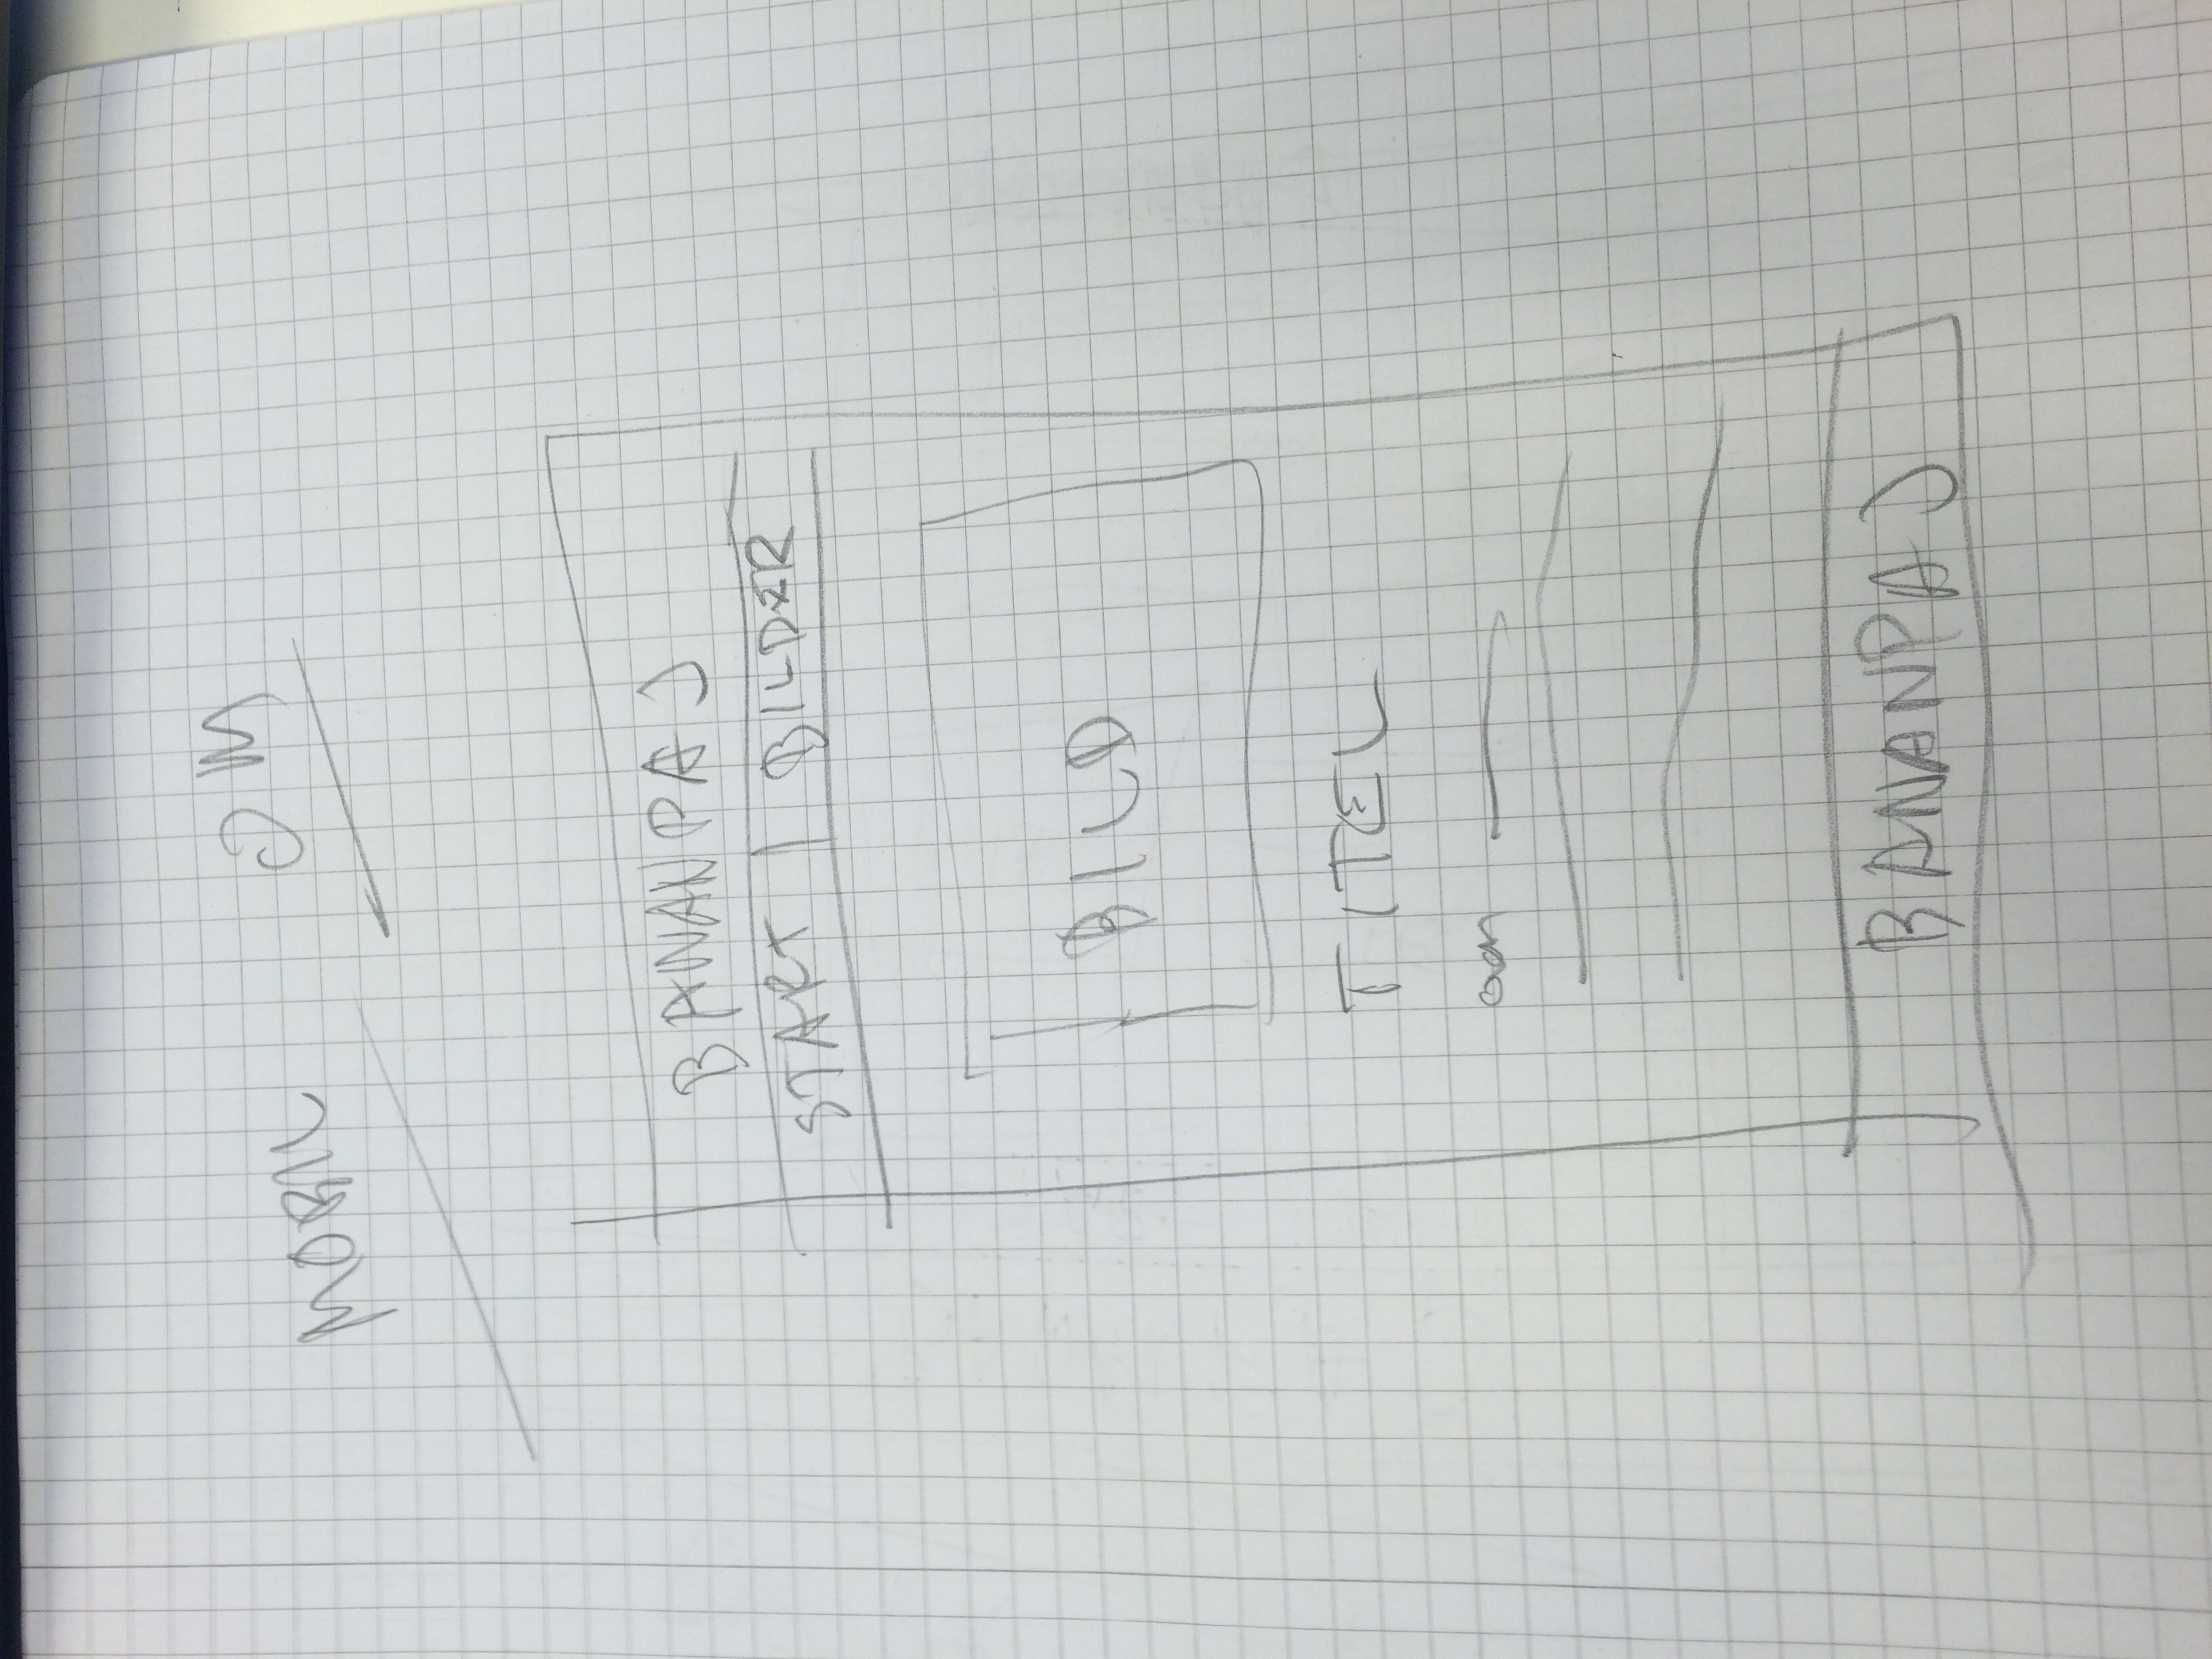 MOBIL OM
BANANPAJ
START | BILDER
BILD
TITEL
BANANPAJ